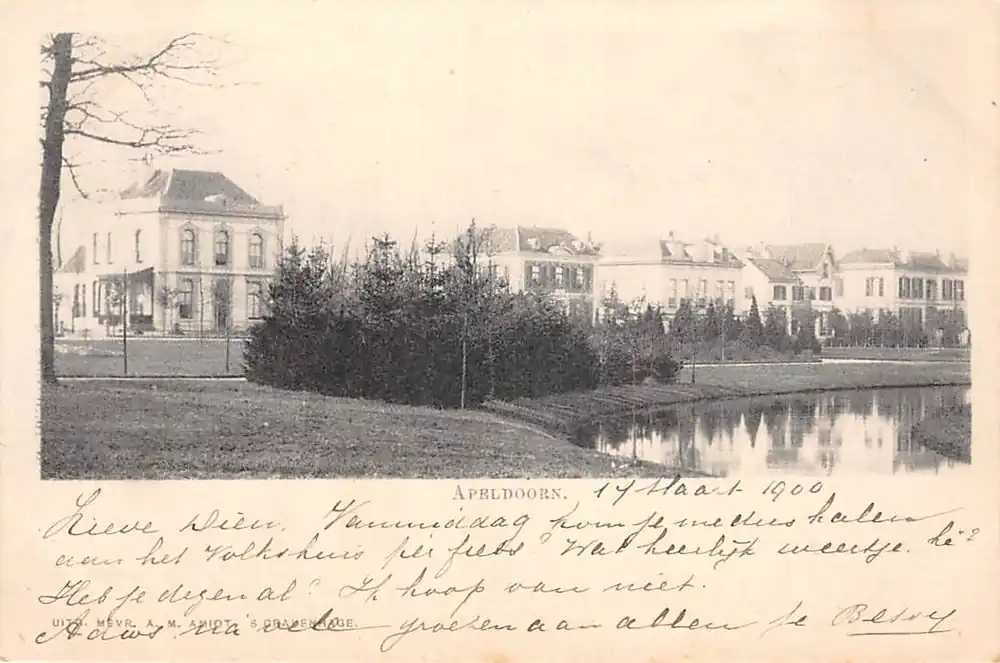 APELDOORN.
17 Maart 1900
Lieve Dien. Vanmiddag kom je me dus halen
aan het Volkshuis per fiets? Wat heerlijk weertje. hè?
Heb je degen al? Ik hoop van niet.
UITG. MEVR. A. M. AMIOT, 'S GRAVENHAGE.
Adios na vele groeten aan allen je Betsy